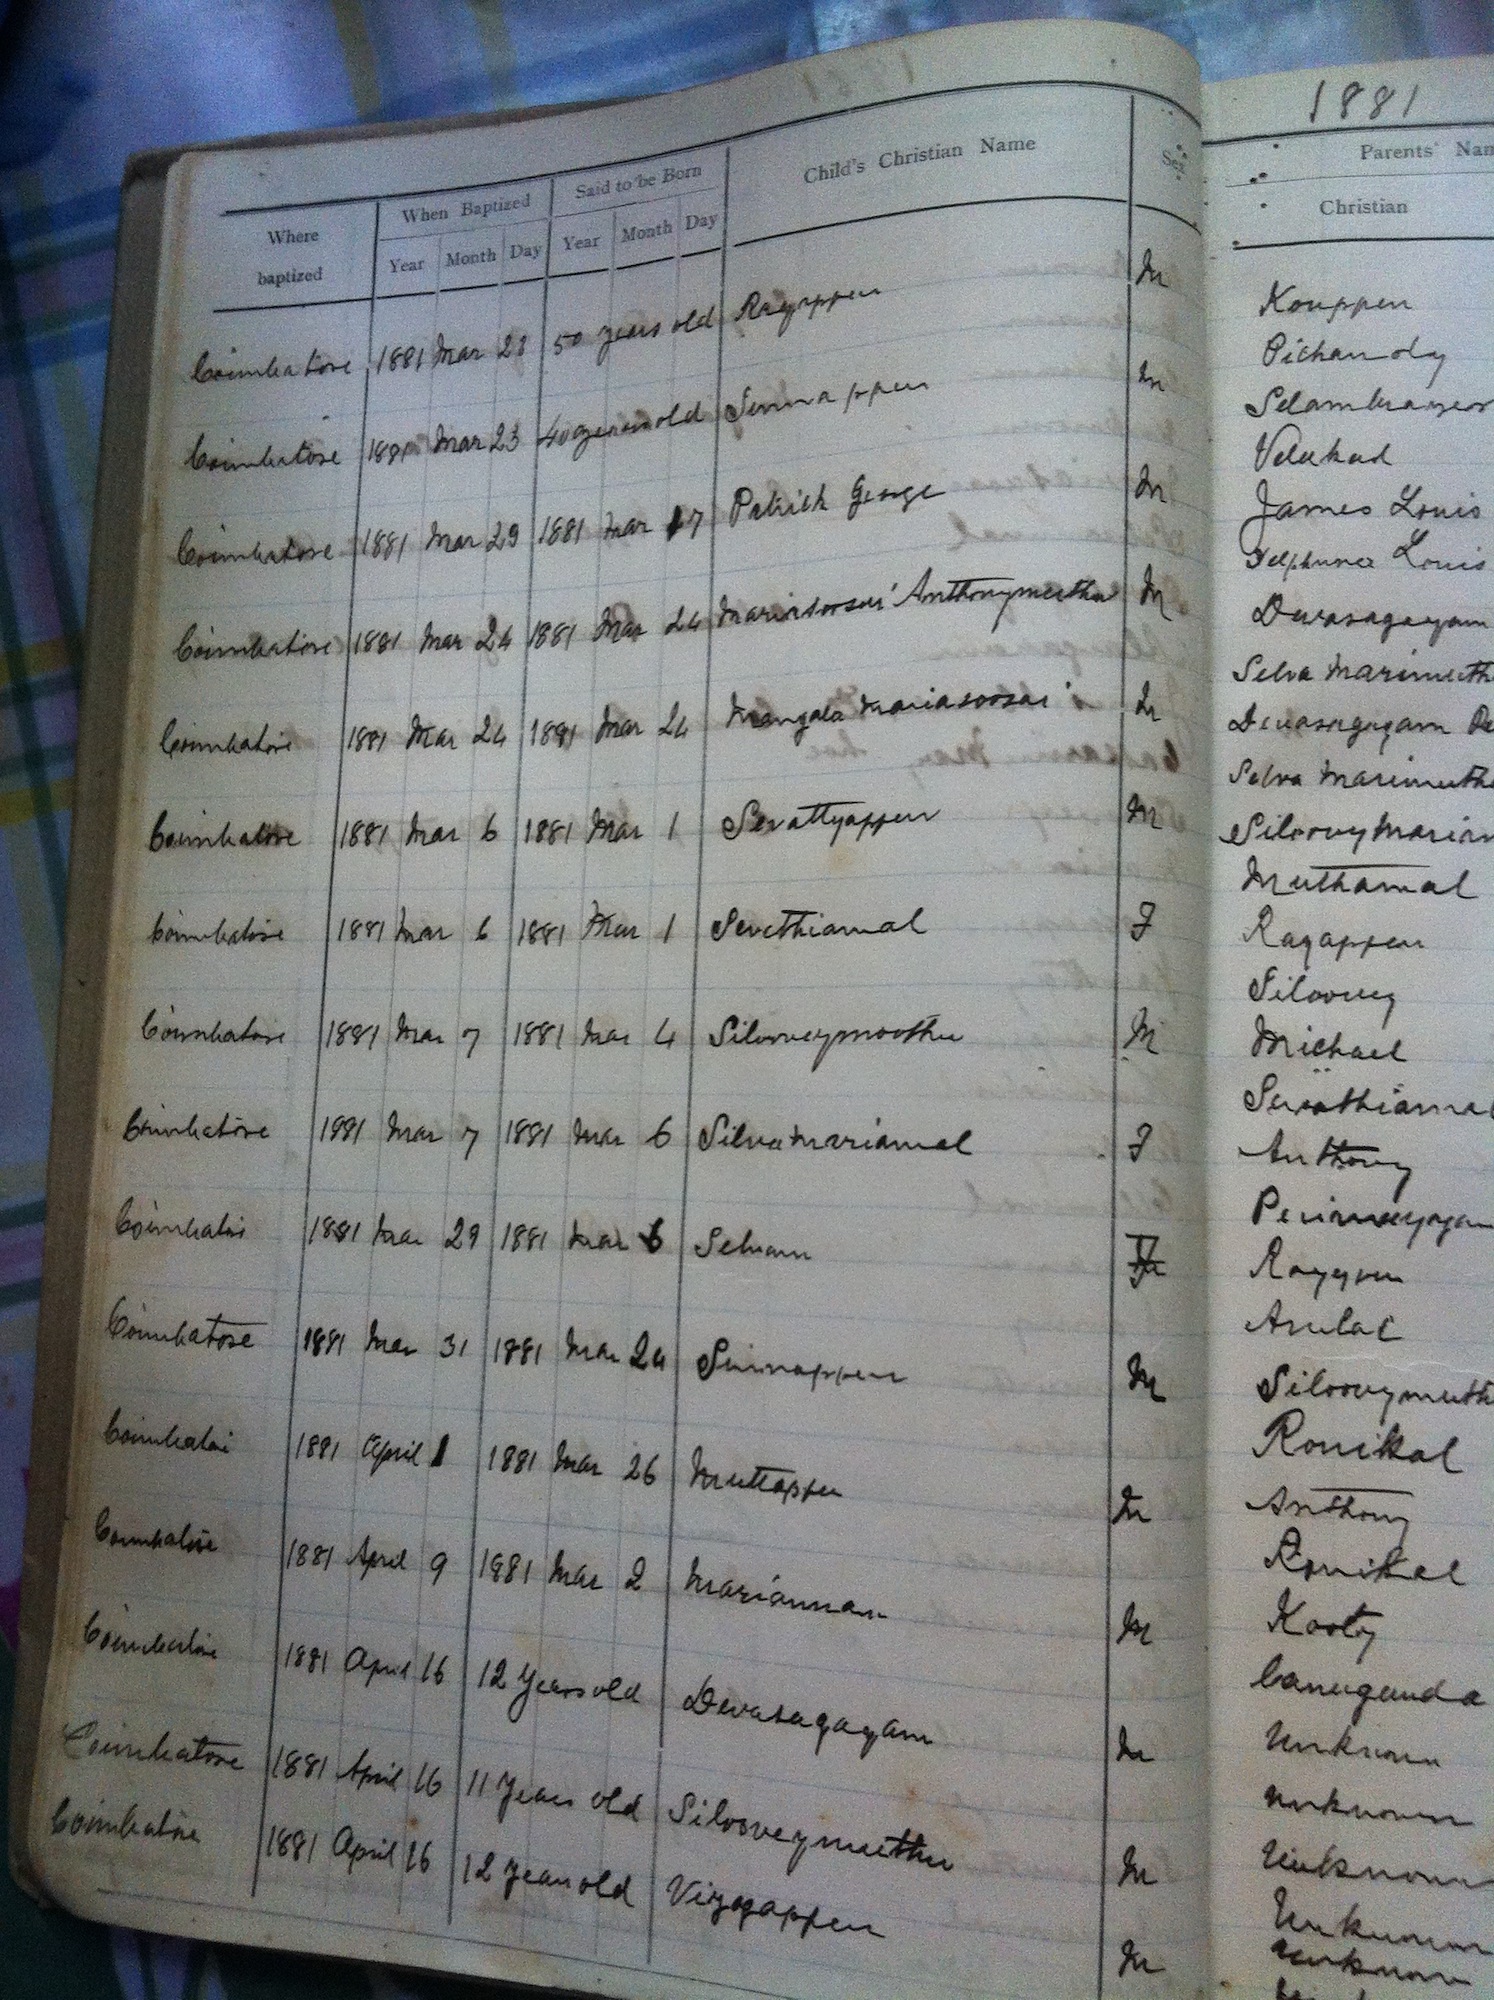 1881
Where baptized
When Baptized
Year Month Day
Said to be Born
Year Month Day
Child's Christian Name
Sex
Coimbatore 1881 Mar 23 50 years old Rayappen M
Coimbatore 1881 Mar 23 40 years old Sinnappen M
Coimbatore 1881 Mar 29 1881 Mar 17 Patrick George M
Coimbatore 1881 Mar 24 1881 Mar 24 Mariasoosai Anthonymuthu M
Coimbatore 1881 Mar 24 1881 Mar 24 Mangala Mariasoosai M
Coimbatore 1881 Mar 6 1881 Mar 1 Savattyappen M
Coimbatore 1881 Mar 6 1881 Mar 1 Savethiamal F
Coimbatore 1881 Mar 7 1881 Mar 4 Silooveymoothu M
Coimbatore 1881 Mar 7 1881 Mar 6 Silva Mariamal F
Coimbatore 1881 Mar 29 1881 Mar 6 Selvam F
Coimbatore 1881 Mar 31 1881 Mar 24 Sinnappen M
Coimbatore 1881 April 1 1881 Mar 26 Muttappen M
Coimbatore 1881 April 9 1881 Mar 2 Mariannan M
Coimbatore 1881 April 16 12 Years old Devasagayam M
Coimbatore 1881 April 16 11 Years old Silooveymuthu M
Coimbatore 1881 April 16 12 years old Viyagappen M
1881
Parents' Nam
Christian
Kouppen
Pichandy
Velakad
James Louis
Louis
Devasagayam
Selva Marimuth
Devasagayam
Selva Marimuth
Siloovy Marian
Muthamal
Rayappen
Siloovey
Michael
Savathiamal
Anthony
Rayappen
Arulai
Siloovymuth
Ronikal
Anthony
Ronikal
Kooty
Unknown
Unknown
Unknown
Unknown
Unknown